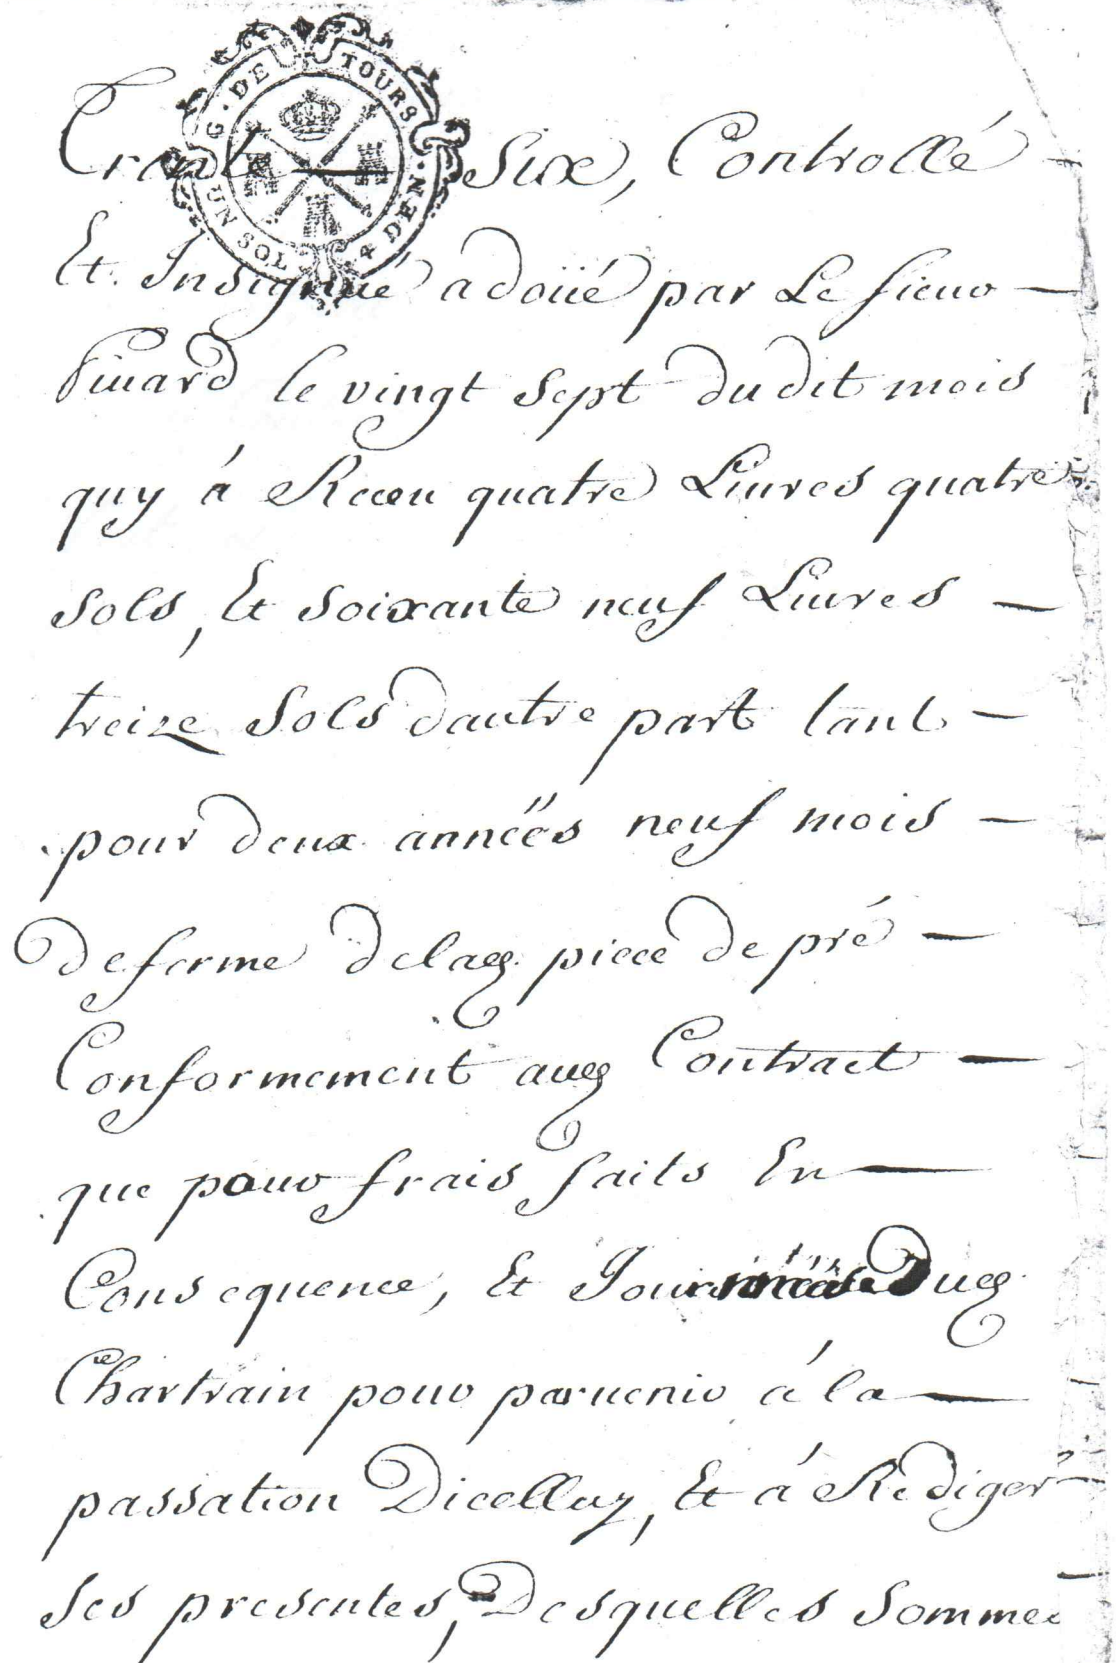 G. DE TOURS
UN SOL 4 DEN.
Trente Six, Controllé
Et Insignué a doüé par Le sieur
Piuard le vingt sept dudit mois
quy á Receu quatre Liures quatre
sols, Et soixante neuf Liures
treize sols dautre part tant
pour deux annéés neuf mois
de ferme delad. piece de pré
Conformement aud. Contract
que pour frais faits En
Consequence, Et Journées Dud.
Chartrain pour paruenir á la
passation Dicelluy, Et á Rediger
ses presentes, Desquelles sommes